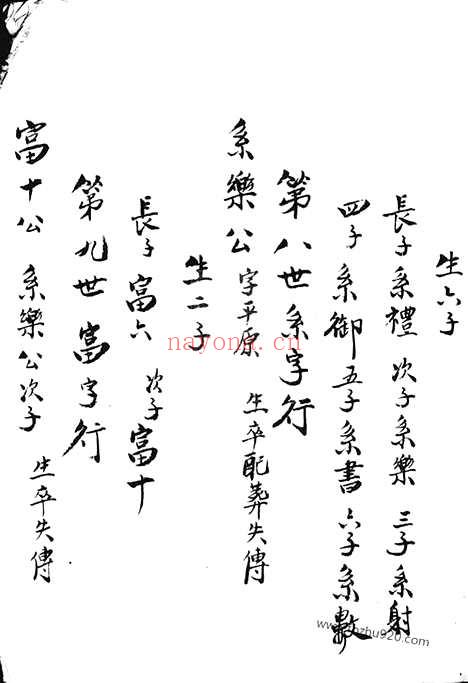 生六子
長子系禮 次子系樂 三子系射
四子系御 五子系書 六子系數
第八世系字行
系樂公 字平原 生卒配葬失傳
生二子
長子富六 次子富十
第九世富字行
富十公 系樂公次子 生卒失傳
nayona.cn